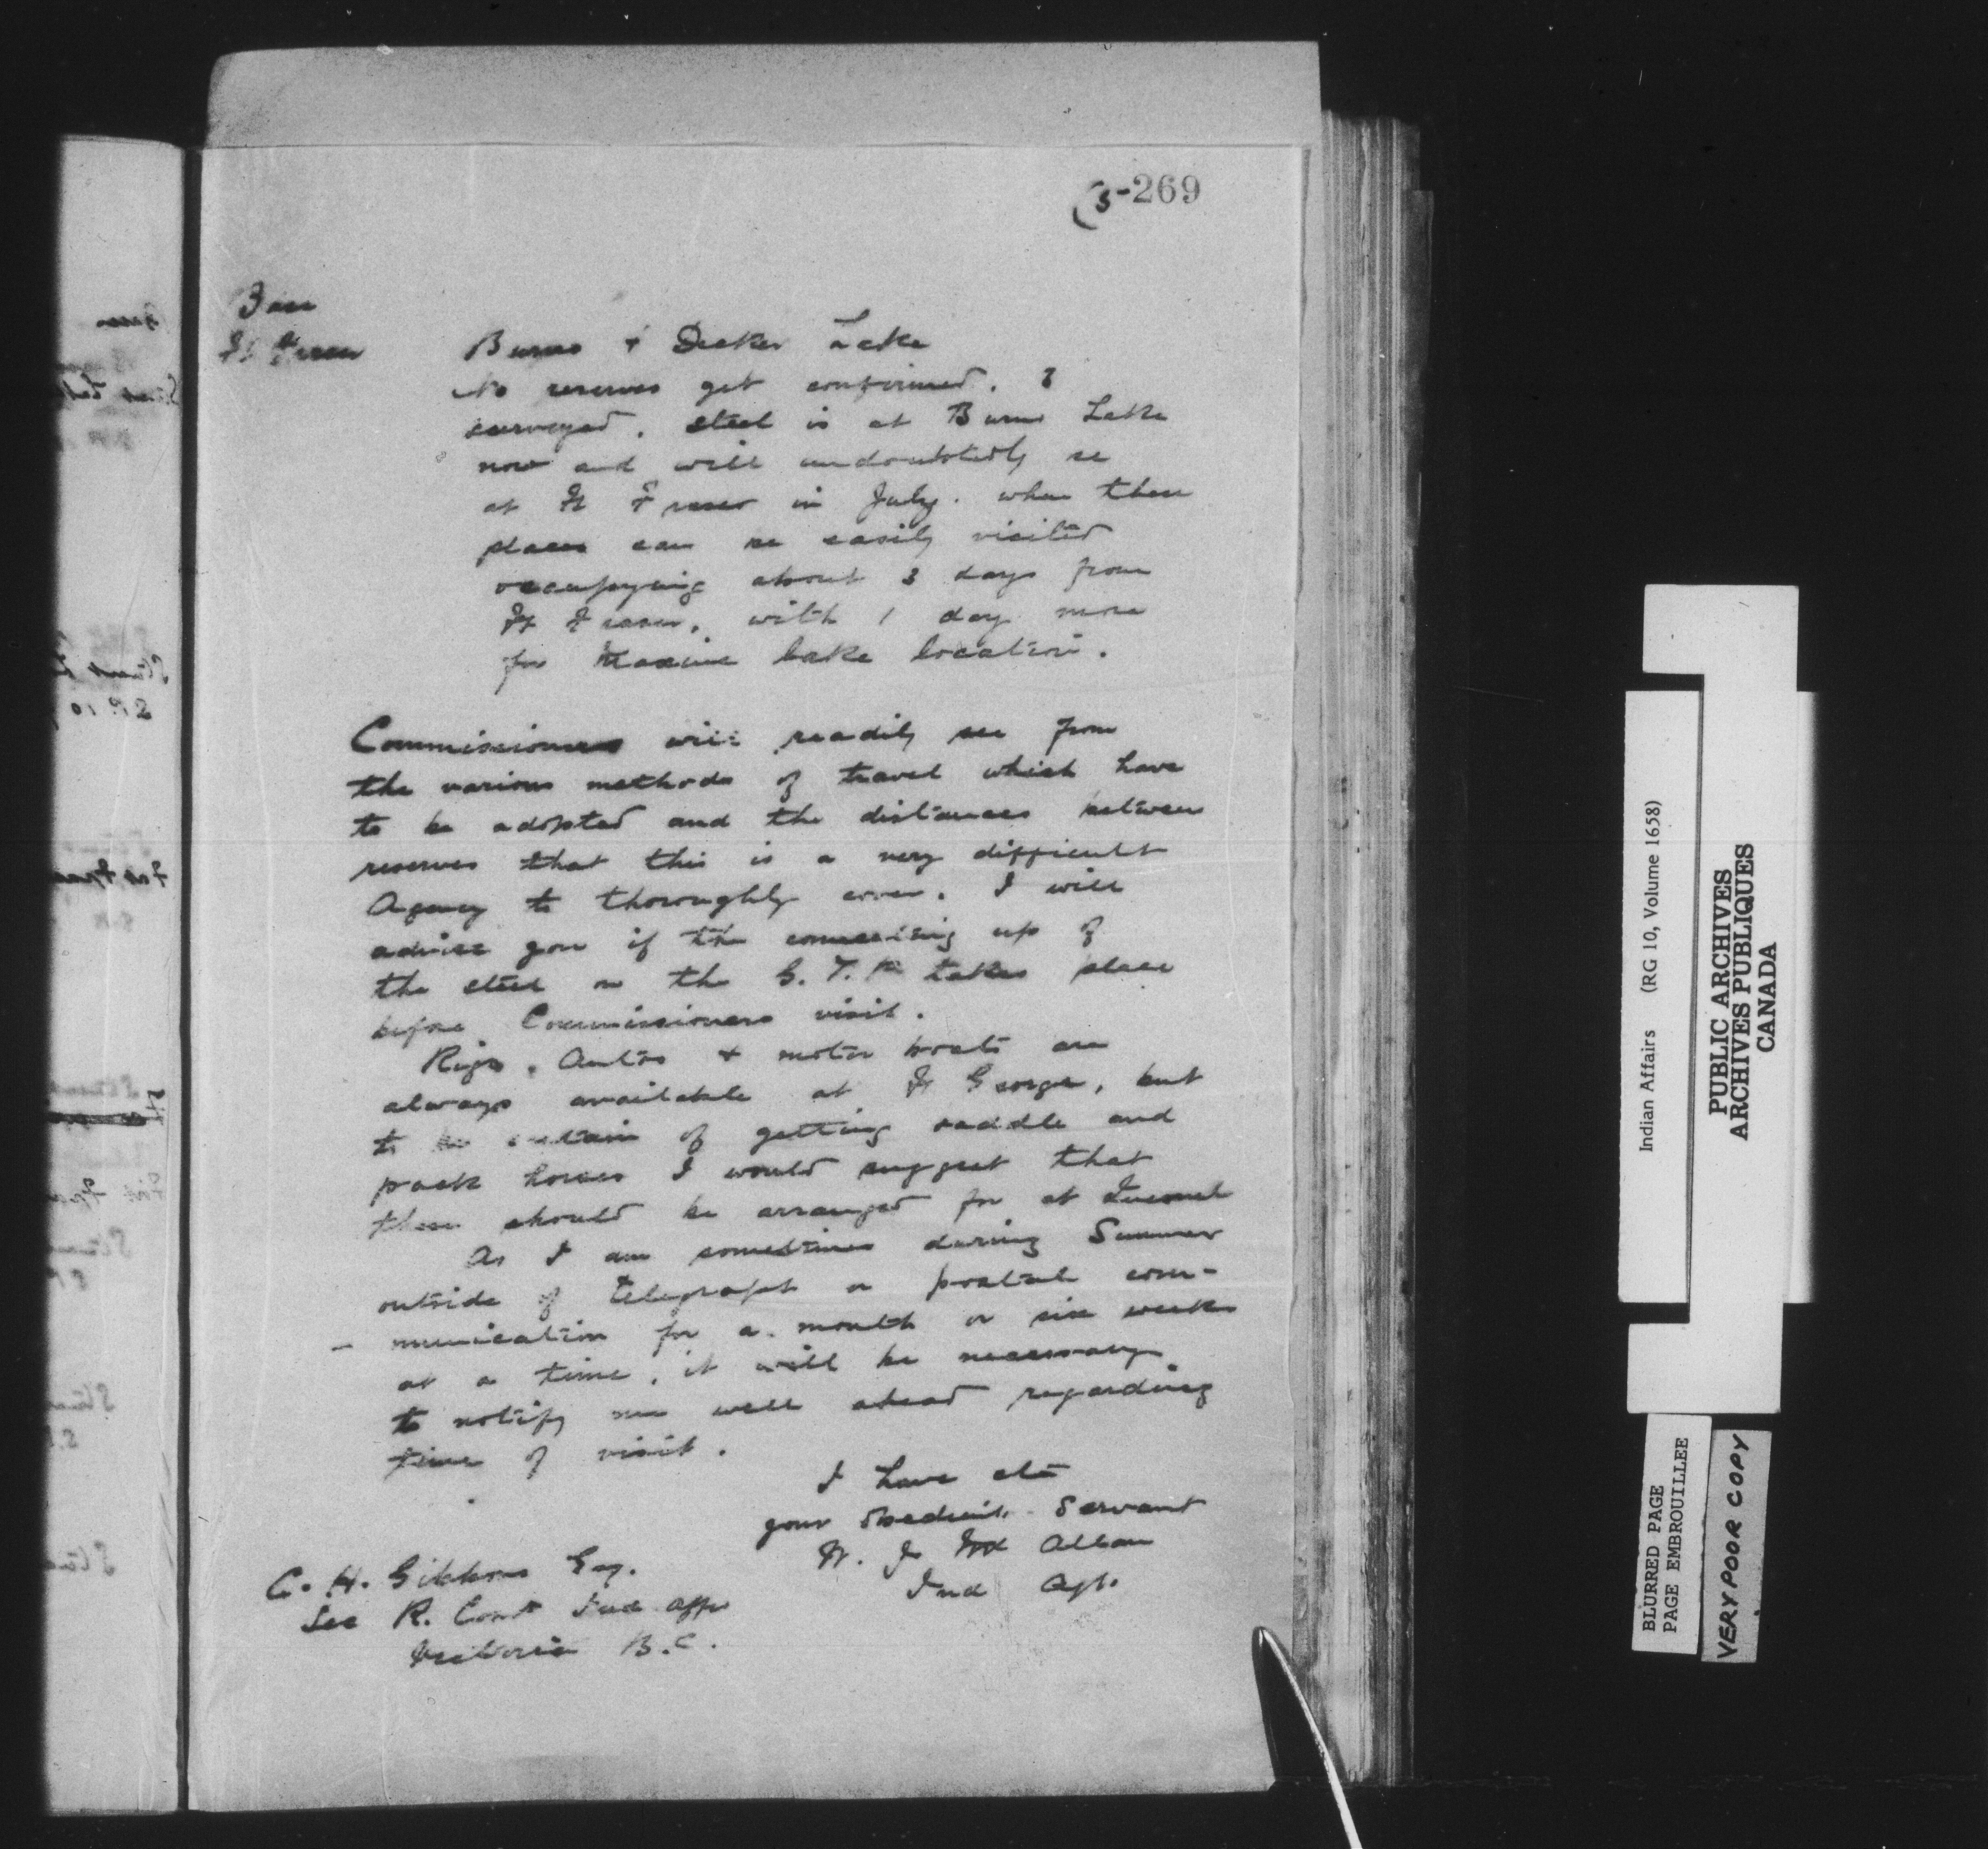 (5-269
Base
Ft Fraser
Burns & Decker Lake
No reserves yet confirmed. 3
surveyed. Steel is at Burns Lake
now and will undoubtedly be
at Ft Fraser in July. when these
places can be easily visited
occupying about 3 days from
Ft Fraser, with 1 day more
for Maxime Lake location.
Commissioners will readily see from
the various methods of travel which have
to be adopted and the distances between
reserves that this is a very difficult
Agency to thoroughly cover. I will
advise you if the connecting up of
the steel on the G. T. P. takes place
before Commissioners visit.
Rigs, Autos & motor boats are
always available at Ft George, but
to be certain of getting saddle and
pack horses I would suggest that
these should be arranged for at Quesnel
As I am sometimes during Summer
outside of telegraph or postal com-
- munication for a month or six weeks
at a time, it will be necessary
to notify me well ahead regarding
time of visit.
I have etc
your Obedient Servant
W. J. McAllan
Ind Agt.
C. H. Gibbons Esq.
Sec R. Com Ind Affrs
Victoria B.C.
Indian Affairs (RG 10, Volume 1658)
PUBLIC ARCHIVES
ARCHIVES PUBLIQUES
CANADA
BLURRED PAGE
PAGE EMBROUILLEE
VERY POOR COPY